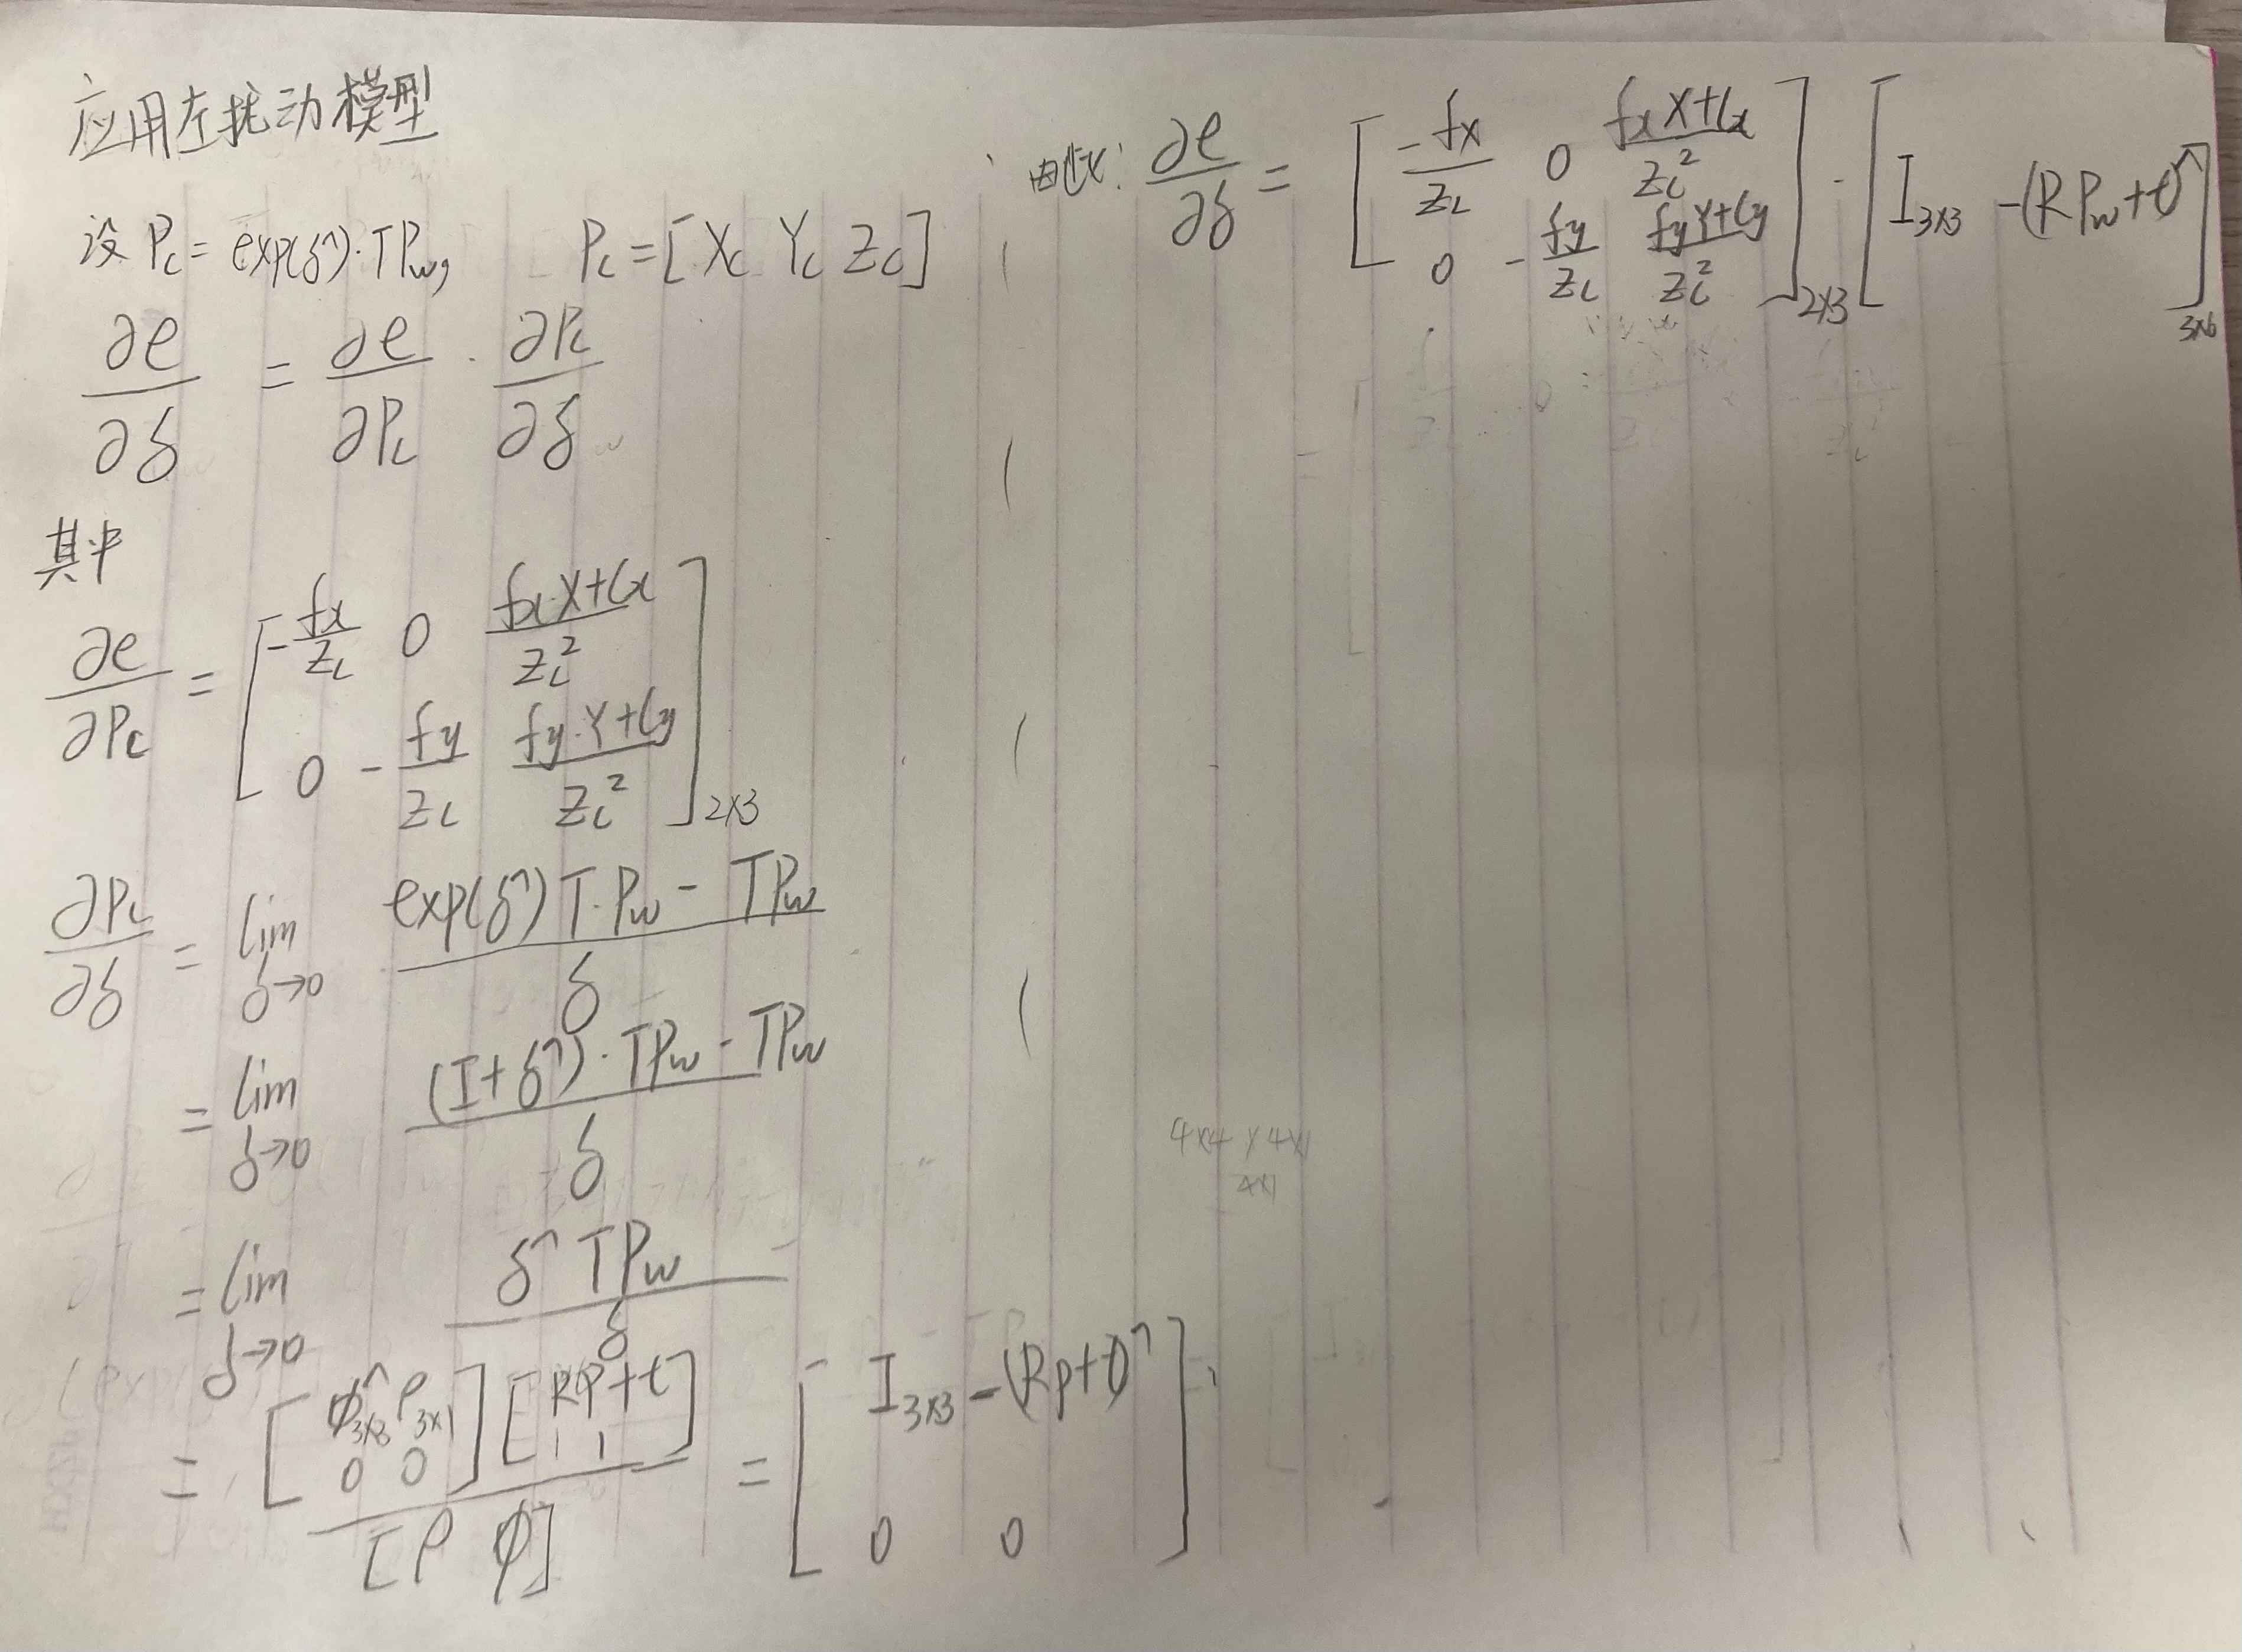 应用左扰动模型
设 Pc = exp(δ^)·TPw, Pc = [Xc Yc Zc]
∂e/∂δ = ∂e/∂Pc · ∂Pc/∂δ
其中
∂e/∂Pc = [ -fx/Zc 0 (fx·X+Cx)/Zc²
0 -fy/Zc (fy·Y+Cy)/Zc² ]2×3
∂Pc/∂δ = lim δ→0 (exp(δ^)T·Pw - TPw)/δ
= lim δ→0 ((I+δ^)·TPw - TPw)/δ
= lim δ→0 δ^TPw/δ
= [ φ^3×3 ρ3×1
0 0 ] [ RP+t
1 ] / [ρ φ] = [ I3×3 -(Rp+t)^
0 0 ]
∂e/∂δ = [ -fx/Zc 0 (fx X+Cx)/Zc²
0 -fy/Zc (fy Y+Cy)/Zc² ]2×3 · [ I3×3 -(RPw+t)^ ]3×6
4×4 × 4×1
4×1